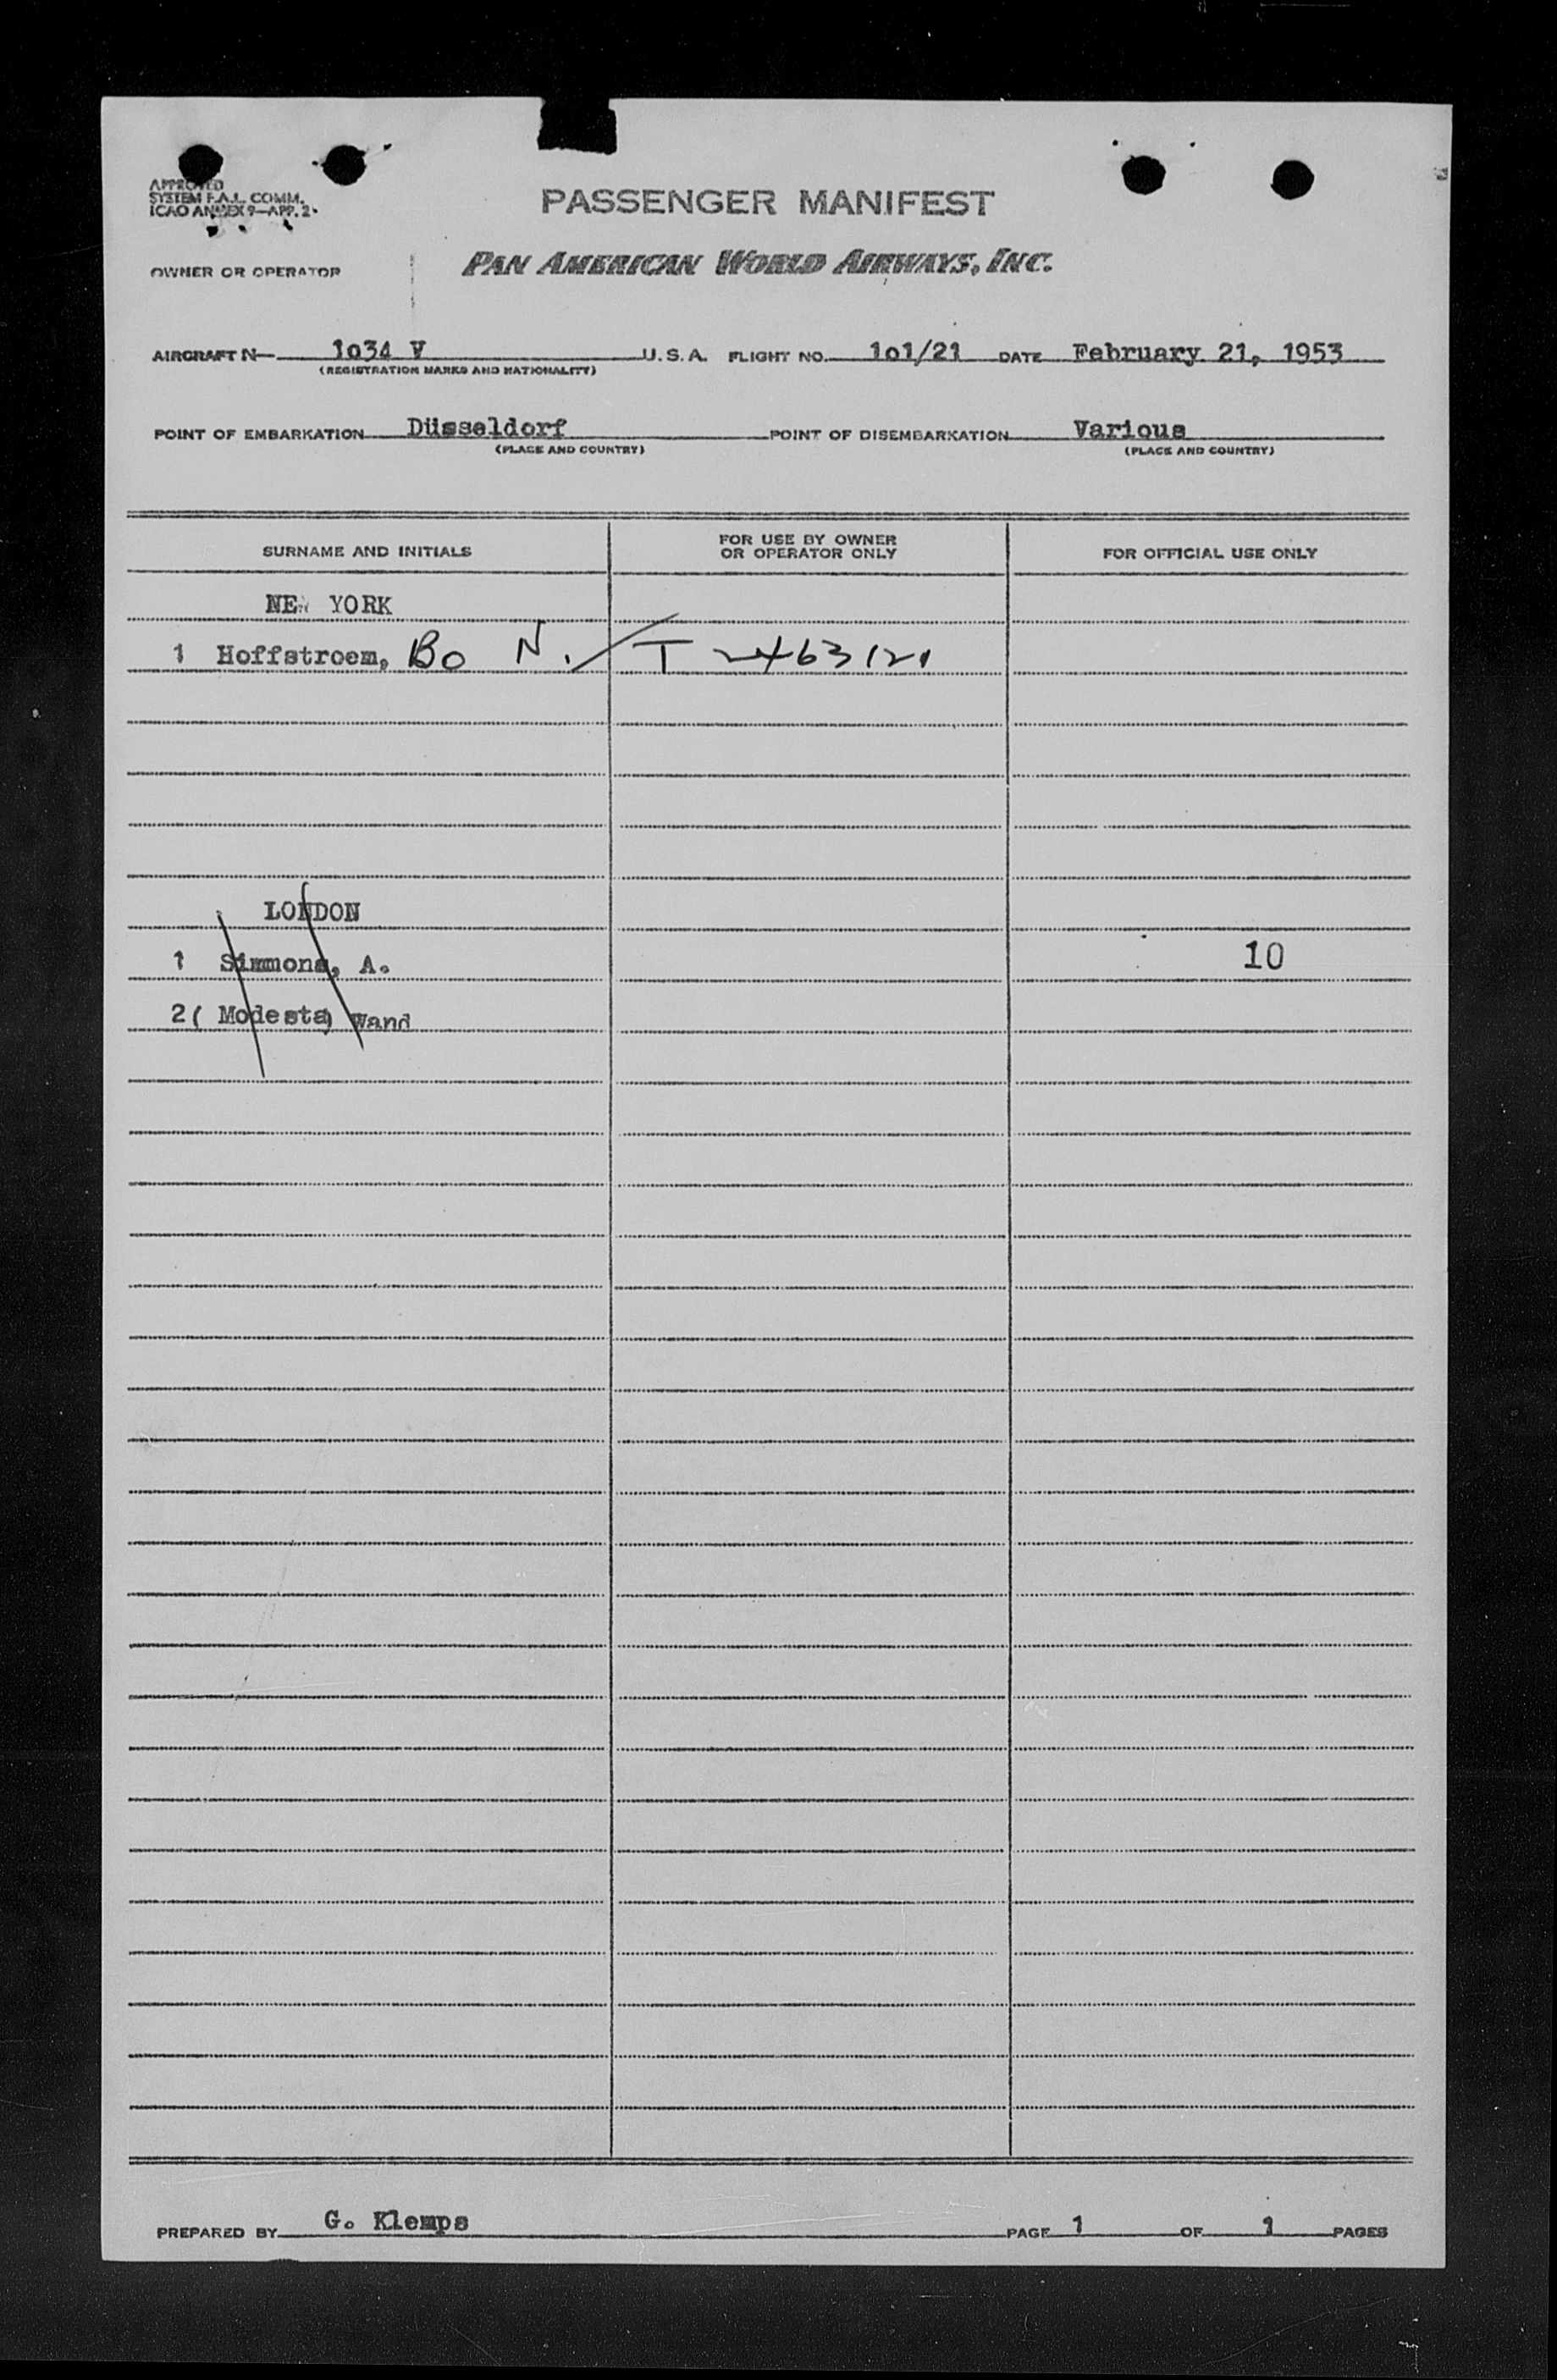 APPROVED
SYSTEM F.A.L. COMM.
ICAO ANNEX 9—APP. 2
PASSENGER MANIFEST
OWNER OR OPERATOR PAN AMERICAN WORLD AIRWAYS, INC.
AIRCRAFT N— 1o34 V U.S.A. FLIGHT NO. 1o1/21 DATE February 21, 1953
(REGISTRATION MARKS AND NATIONALITY)
POINT OF EMBARKATION Düsseldorf POINT OF DISEMBARKATION Various
(PLACE AND COUNTRY) (PLACE AND COUNTRY)
SURNAME AND INITIALS FOR USE BY OWNER OR OPERATOR ONLY FOR OFFICIAL USE ONLY
NEW YORK
1 Hoffstroem, Bo N. T 2463121
LONDON
1 Simmons, A. 10
2 ( Modesta) Wand
PREPARED BY G. Klemps PAGE 1 OF 1 PAGES